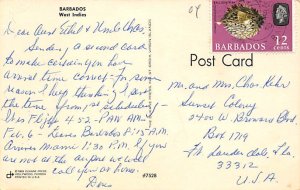 BARBADOS
West Indies
04
BARBADOS
12
CENTS
Post Card
Dear Aunt Ethel & Uncle Chas
Sending a second card
to make certain you have
arrival time correct for some
reason I keep thinking I gave
the time from 1st schedule
Flight 452 - PAN AM
Feb. 6 - Leave Barbados 9:15 A.M.
Arrives Miami 1:30 P.M. If you
are not at the airport we will
call you at home.
Mr. and Mrs. Chas. Kehr
Sunset Colony
2400 W Broward Blvd.
Box 1719
Ft. Lauderdale, Fla.
33312
U.S.A.
67528